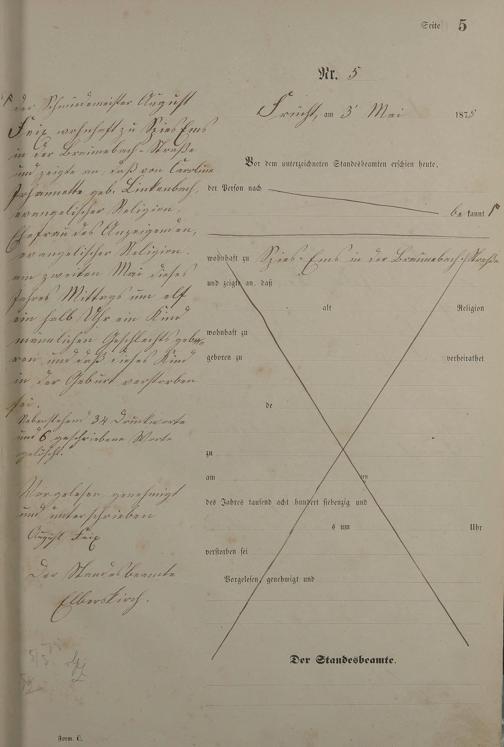 Seite 5
Nr. 5
Frücht, am 3 Mai 1875
Vor dem unterzeichneten Standesbeamten erschien heute,
der Person nach
bekannt
wohnhaft zu Spies-Ems in der Braunebach-Straße
und zeigte an, daß
alt Religion
wohnhaft zu
geboren zu verheirathet
de
zu
am ten
des Jahres tausend acht hundert siebenzig und
s um Uhr
verstorben sei
Vorgelesen, genehmigt und
Der Standesbeamte.
der Schmiedemeister August
Feix wohnhaft zu Spies Ems
in der Braunebach-Straße
und zeigte an, daß von Caroline
geb. Linkenbach,
evangelischer Religion
Ehefrau des Anzeigenden,
evangelischer Religion.
am zweiten Mai dieses
Jahres Mittags um elf
ein halb Uhr ein Kind
männlichen Geschlechts gebo-
ren und daß dieses Kind
in der Geburt verstorben
sei.
Nebenstehend 34 Druckworte
und 6 geschriebene Worte
gelöscht.
Vorgelesen genehmigt
und unterschrieben
August Feix
Der Standesbeamte
Elberskirch.
Form. C.